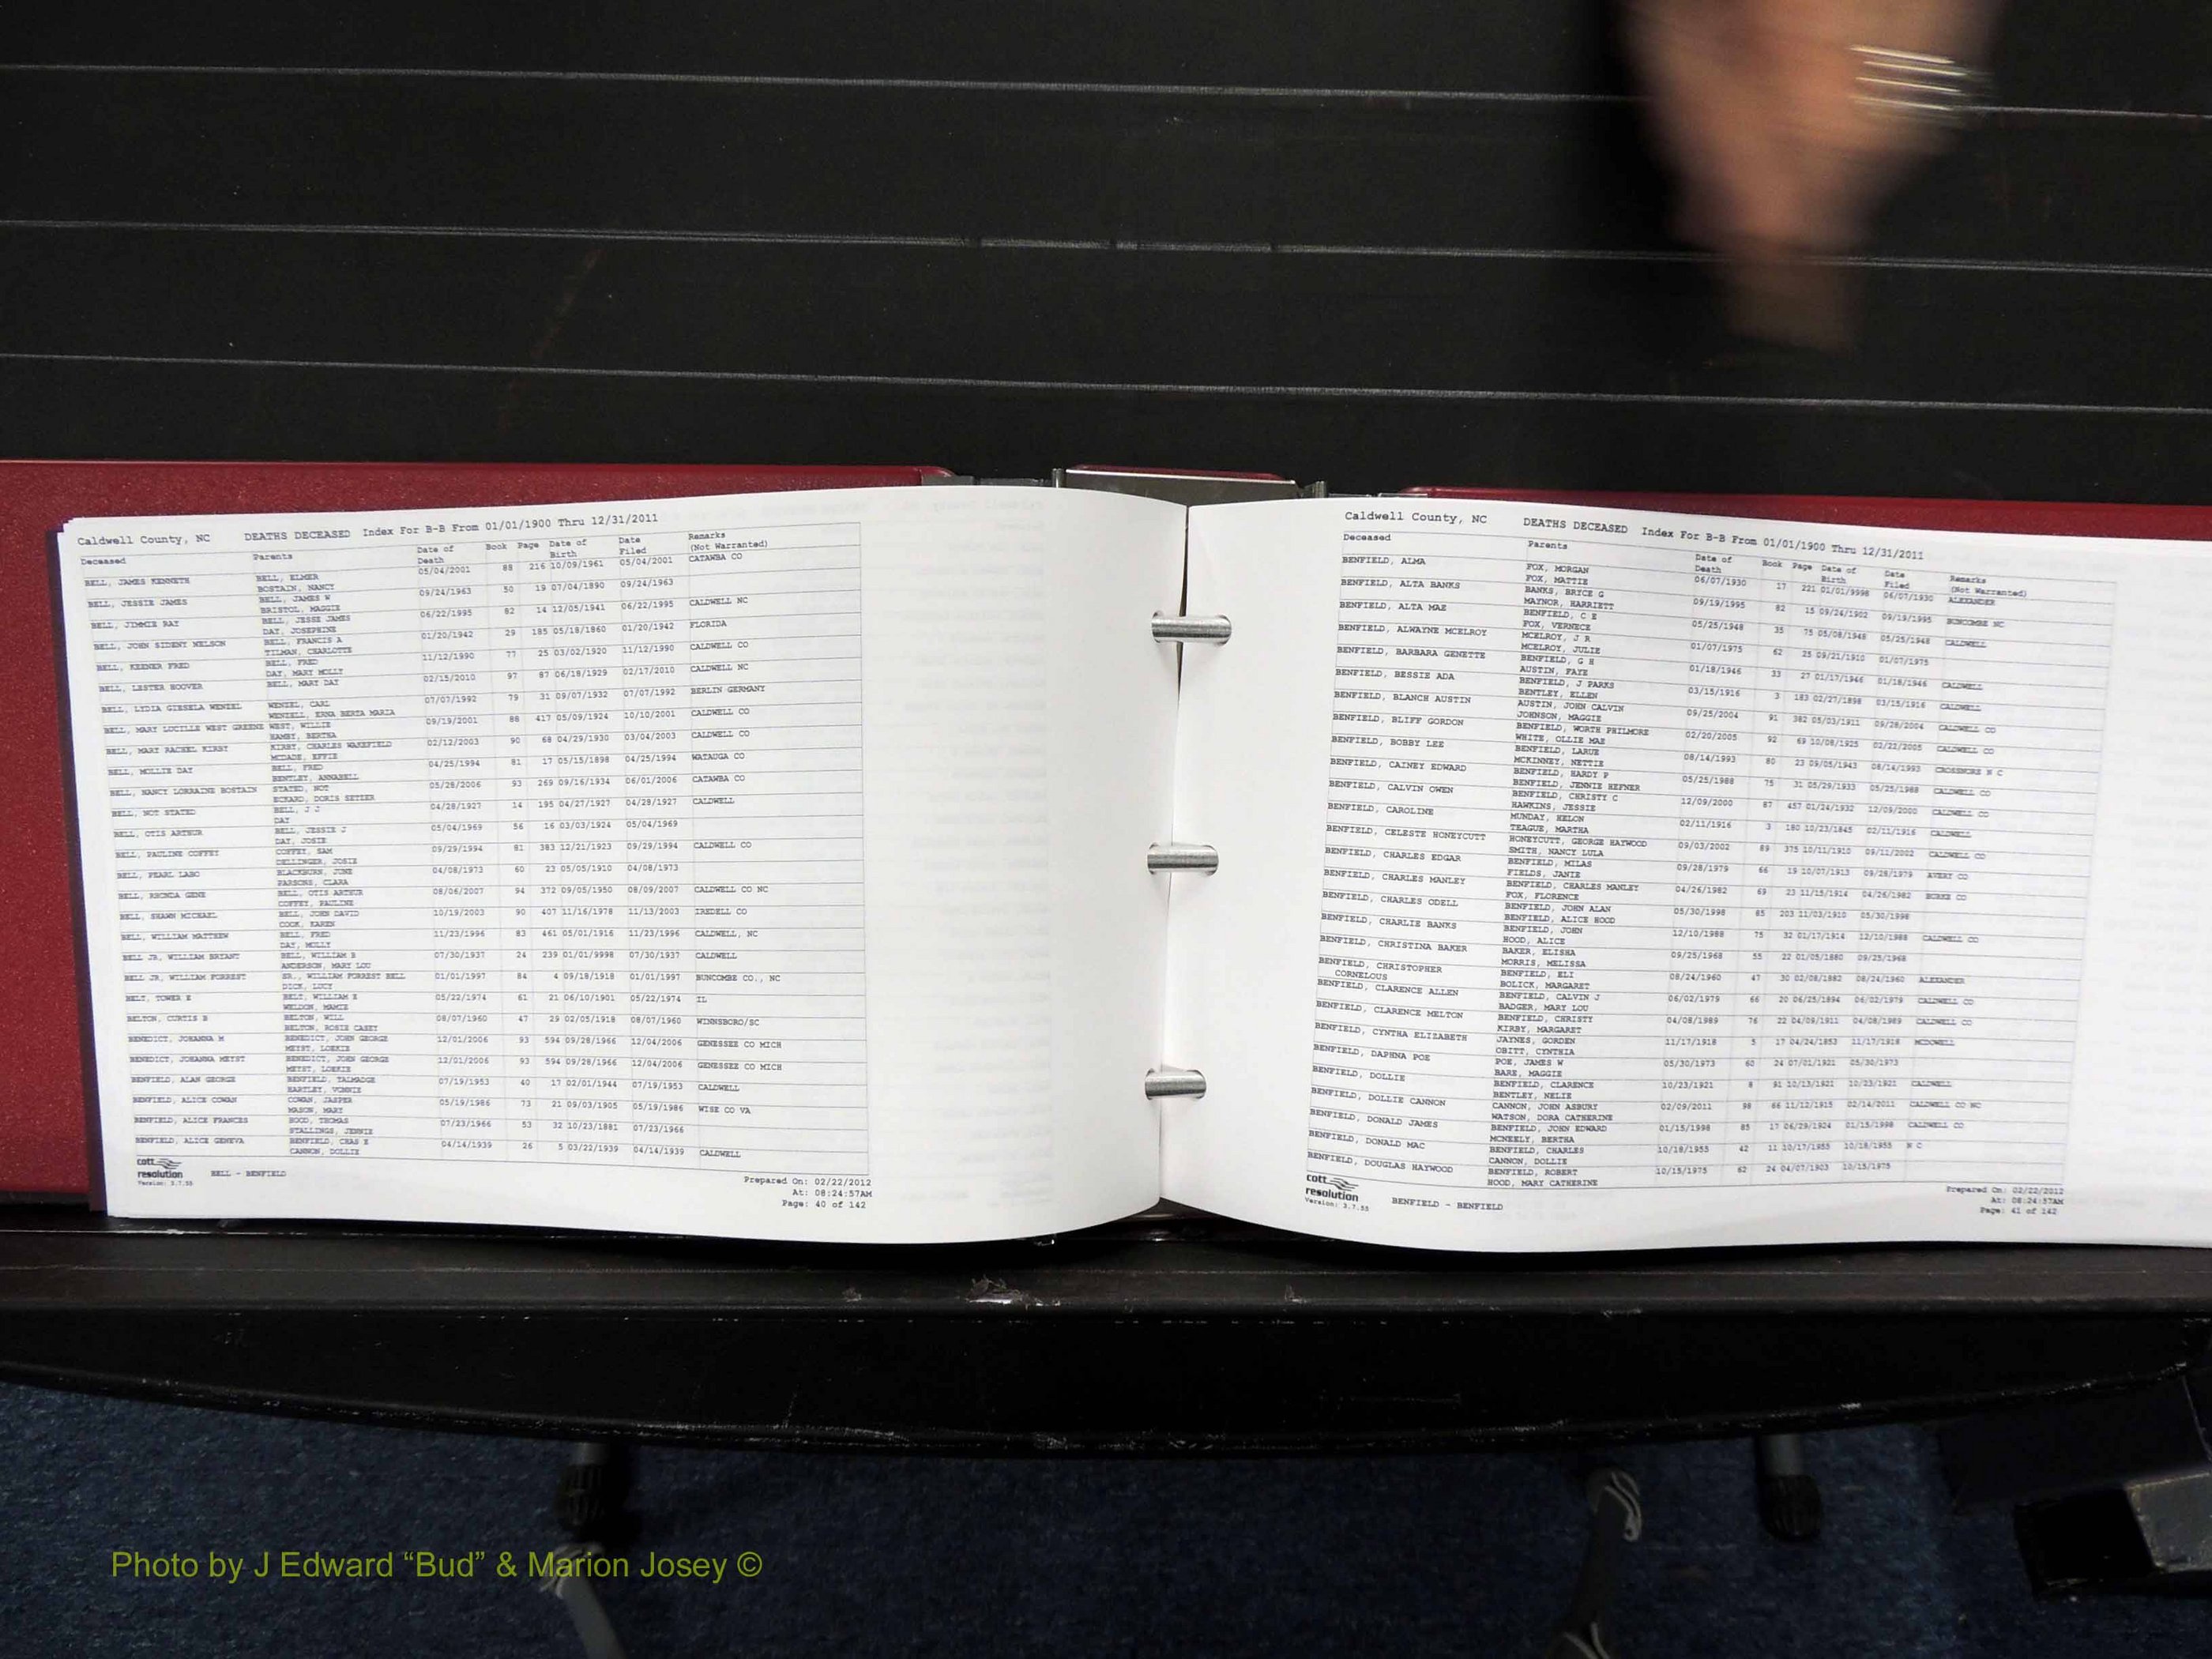 Caldwell County, NC DEATHS DECEASED Index For B-B From 01/01/1900 Thru 12/31/2011
Deceased Parents Date of Death Book Page Date of Birth Date Filed Remarks (Not Warranted)
BELL, JAMES KENNETH BELL, ELMER 05/04/2001 88 216 10/09/1961 05/04/2001 CATAWBA CO
BOSTAIN, NANCY
BELL, JESSIE JAMES BELL, JAMES W 09/24/1963 50 19 07/04/1890 09/24/1963
BRISTOL, MAGGIE
BELL, JIMMIE RAY BELL, JESSE JAMES 06/22/1995 82 14 12/05/1941 06/22/1995 CALDWELL NC
DAY, JOSEPHINE
BELL, JOHN SIDENY NELSON BELL, FRANCIS A 01/20/1942 29 185 05/18/1860 01/20/1942 FLORIDA
TILMAN, CHARLOTTE
BELL, KEENER FRED BELL, FRED 11/12/1990 77 25 03/02/1920 11/12/1990 CALDWELL CO
DAY, MARY MOLLY
BELL, LESTER HOOVER BELL, MARY DAY 02/15/2010 97 87 06/18/1929 02/17/2010 CALDWELL NC
BELL, LYDIA GIESELA WENZEL WENZEL, CARL 07/07/1992 79 31 09/07/1932 07/07/1992 BERLIN GERMANY
WENZELL, ERNA BERTA MARIA
BELL, MARY LUCILLE WEST GREENE WEST, WILLIE 09/19/2001 88 417 05/09/1924 10/10/2001 CALDWELL CO
HAMBY, BERTHA
BELL, MARY RACHEL KIRBY KIRBY, CHARLES WAKEFIELD 02/12/2003 90 68 04/29/1930 03/04/2003 CALDWELL CO
MCDADE, EFFIE
BELL, MOLLIE DAY BELL, FRED 04/25/1994 81 17 05/15/1898 04/25/1994 WATAUGA CO
BENTLEY, ANNABELL
BELL, NANCY LORRAINE BOSTAIN STATED, NOT 05/25/2006 93 269 09/16/1934 06/01/2006 CATAWBA CO
ECKARD, DORIS SETZER
BELL, NOT STATED BELL, J J 04/28/1927 14 195 04/27/1927 04/28/1927 CALDWELL
DAY
BELL, OTIS ARTHUR BELL, JESSIE J 05/04/1969 56 16 03/03/1924 05/04/1969
DAY, JOSIE
BELL, PAULINE COFFEY COFFEY, SAM 09/29/1994 81 383 12/21/1923 09/29/1994 CALDWELL CO
DELLINGER, JOSIE
BELL, PEARL LABO BLACKBURN, JUNE 04/08/1973 60 23 05/05/1910 04/08/1973
PARSONS, CLARA
BELL, RHONDA GENE BELL, OTIS ARTHUR 08/06/2007 94 372 09/05/1950 08/09/2007 CALDWELL CO NC
COFFEY, PAULINE
BELL, SHAWN MICHAEL BELL, JOHN DAVID 10/19/2003 90 407 11/16/1978 11/13/2003 IREDELL CO
COOK, KAREN
BELL, WILLIAM MATTHEW BELL, FRED 11/23/1996 83 461 05/01/1916 11/23/1996 CALDWELL, NC
DAY, MOLLY
BELL JR, WILLIAM BRYANT BELL, WILLIAM B 07/30/1937 24 239 01/01/9998 07/30/1937 CALDWELL
ANDERSON, MARY LOU
BELL JR, WILLIAM FORREST SR., WILLIAM FORREST BELL 01/01/1997 84 4 09/18/1918 01/01/1997 BUNCOMBE CO., NC
DICK, LUCY
BELT, TOWER E BELT, WILLIAM E 05/22/1974 61 21 06/10/1901 05/22/1974 IL
WELDON, MAMIE
BELTON, CURTIS B BELTON, WILL 08/07/1960 47 29 02/05/1918 08/07/1960 WINNSBORO/SC
BELTON, ROSIE CASEY
BENEDICT, JOHANNA M BENEDICT, JOHN GEORGE 12/01/2006 93 594 09/28/1966 12/04/2006 GENESSEE CO MICH
MEYST, LOEKIE
BENEDICT, JOHANNA MEYST BENEDICT, JOHN GEORGE 12/01/2006 93 594 09/28/1966 12/04/2006 GENESSEE CO MICH
MEYST, LOEKIE
BENFIELD, ALAN GEORGE BENFIELD, TALMADGE 07/19/1953 40 17 02/01/1944 07/19/1953 CALDWELL
HARTLEY, VONNIE
BENFIELD, ALICE COWAN COWAN, JASPER 05/19/1986 73 21 09/03/1905 05/19/1986 WISE CO VA
MASON, MARY
BENFIELD, ALICE FRANCES HOOD, THOMAS 07/23/1966 53 32 10/23/1881 07/23/1966
STALLINGS, JENNIE
BENFIELD, ALICE GENEVA BENFIELD, CHAS E 04/14/1939 26 5 03/22/1939 04/14/1939 CALDWELL
CANNON, DOLLIE
cott resolution
Version: 3.7.55
BELL - BENFIELD
Prepared On: 02/22/2012
At: 08:24:57AM
Page: 40 of 142
Caldwell County, NC DEATHS DECEASED Index For B-B From 01/01/1900 Thru 12/31/2011
Deceased Parents Date of Death Book Page Date of Birth Date Filed Remarks (Not Warranted)
BENFIELD, ALMA FOX, MORGAN 06/07/1930 17 221 01/01/9998 06/07/1930 ALEXANDER
FOX, MATTIE
BENFIELD, ALTA BANKS BANKS, BRYCE G 09/19/1995 82 15 09/24/1902 09/19/1995 BUNCOMBE NC
MAYNOR, HARRIETT
BENFIELD, ALTA MAE BENFIELD, C E 05/25/1948 35 75 05/08/1948 05/25/1948 CALDWELL
FOX, VERNECE
BENFIELD, ALWAYNE MCELROY MCELROY, J R 01/07/1975 62 25 09/21/1910 01/07/1975
MCELROY, JULIE
BENFIELD, BARBARA GENETTE BENFIELD, G H 01/18/1946 33 27 01/17/1946 01/18/1946 CALDWELL
AUSTIN, FAYE
BENFIELD, BESSIE ADA BENFIELD, J PARKS 03/15/1916 3 183 02/27/1898 03/15/1916 CALDWELL
BENTLEY, ELLEN
BENFIELD, BLANCH AUSTIN AUSTIN, JOHN CALVIN 09/25/2004 91 382 05/03/1911 09/28/2004 CALDWELL CO
JOHNSON, MAGGIE
BENFIELD, BLIFF GORDON BENFIELD, WORTH PHILMORE 02/20/2005 92 69 10/08/1925 02/22/2005 CALDWELL CO
WHITE, OLLIE MAE
BENFIELD, BOBBY LEE BENFIELD, LARUE 08/14/1993 80 23 09/05/1943 08/14/1993 CROSSNORE N C
MCKINNEY, NETTIE
BENFIELD, CAINEY EDWARD BENFIELD, HARDY P 05/25/1988 75 31 05/29/1933 05/25/1988 CALDWELL CO
BENFIELD, JENNIE HEFNER
BENFIELD, CALVIN OWEN BENFIELD, CHRISTY C 12/09/2000 87 457 01/24/1932 12/09/2000 CALDWELL CO
HAWKINS, JESSIE
BENFIELD, CAROLINE MUNDAY, HELON 02/11/1916 3 180 10/23/1845 02/11/1916 CALDWELL
TEAGUE, MARTHA
BENFIELD, CELESTE HONEYCUTT HONEYCUTT, GEORGE HAYWOOD 09/03/2002 89 375 10/11/1910 09/12/2002 CALDWELL CO
SMITH, NANCY LULA
BENFIELD, CHARLES EDGAR BENFIELD, MILAS 09/28/1979 66 19 10/07/1913 09/28/1979 AVERY CO
FIELDS, JANIE
BENFIELD, CHARLES MANLEY BENFIELD, CHARLES MANLEY 04/26/1982 69 23 11/15/1914 04/26/1982 BURKE CO
FOX, FLORENCE
BENFIELD, CHARLES ODELL BENFIELD, JOHN ALAN 05/30/1998 85 203 11/03/1910 05/30/1998
BENFIELD, ALICE HOOD
BENFIELD, CHARLIE BANKS BENFIELD, JOHN 12/10/1988 75 32 01/17/1914 12/10/1988 CALDWELL CO
HOOD, ALICE
BENFIELD, CHRISTINA BAKER BAKER, ELISHA 09/25/1968 55 22 01/05/1880 09/25/1968
MORRIS, MELISSA
BENFIELD, CHRISTOPHER BENFIELD, ELI 08/24/1960 47 30 02/08/1882 08/24/1960 ALEXANDER
CORNELOUS BOLICK, MARGARET
BENFIELD, CLARENCE ALLEN BENFIELD, CALVIN J 06/02/1979 66 20 06/25/1894 06/02/1979 CALDWELL CO
BADGER, MARY LOU
BENFIELD, CLARENCE MELTON BENFIELD, CHRISTY 04/08/1989 76 22 04/09/1911 04/08/1989 CALDWELL CO
KIRBY, MARGARET
BENFIELD, CYNTHA ELIZABETH JAYNES, GORDEN 11/17/1918 5 17 04/24/1853 11/17/1918 MCDOWELL
OBITT, CYNTHIA
BENFIELD, DAPHNA POE POE, JAMES W 05/30/1973 60 24 07/01/1921 05/30/1973
BARE, MAGGIE
BENFIELD, DOLLIE BENFIELD, CLARENCE 10/23/1921 8 91 10/13/1921 10/23/1921 CALDWELL
BENTLEY, NELIE
BENFIELD, DOLLIE CANNON CANNON, JOHN ASBURY 02/09/2011 98 66 11/12/1915 02/14/2011 CALDWELL CO NC
WATSON, DORA CATHERINE
BENFIELD, DONALD JAMES BENFIELD, JOHN EDWARD 01/15/1998 85 17 06/29/1924 01/15/1998 CALDWELL CO
MCNEELY, BERTHA
BENFIELD, DONALD MAC BENFIELD, CHARLES 10/18/1955 42 11 10/17/1955 10/18/1955 N C
CANNON, DOLLIE
BENFIELD, DOUGLAS HAYWOOD BENFIELD, ROBERT 10/15/1975 62 24 04/07/1903 10/15/1975
HOOD, MARY CATHERINE
cott resolution
Version: 3.7.55
BENFIELD - BENFIELD
Prepared On: 02/22/2012
At: 08:24:57AM
Page: 41 of 142
Photo by J Edward “Bud” & Marion Josey ©